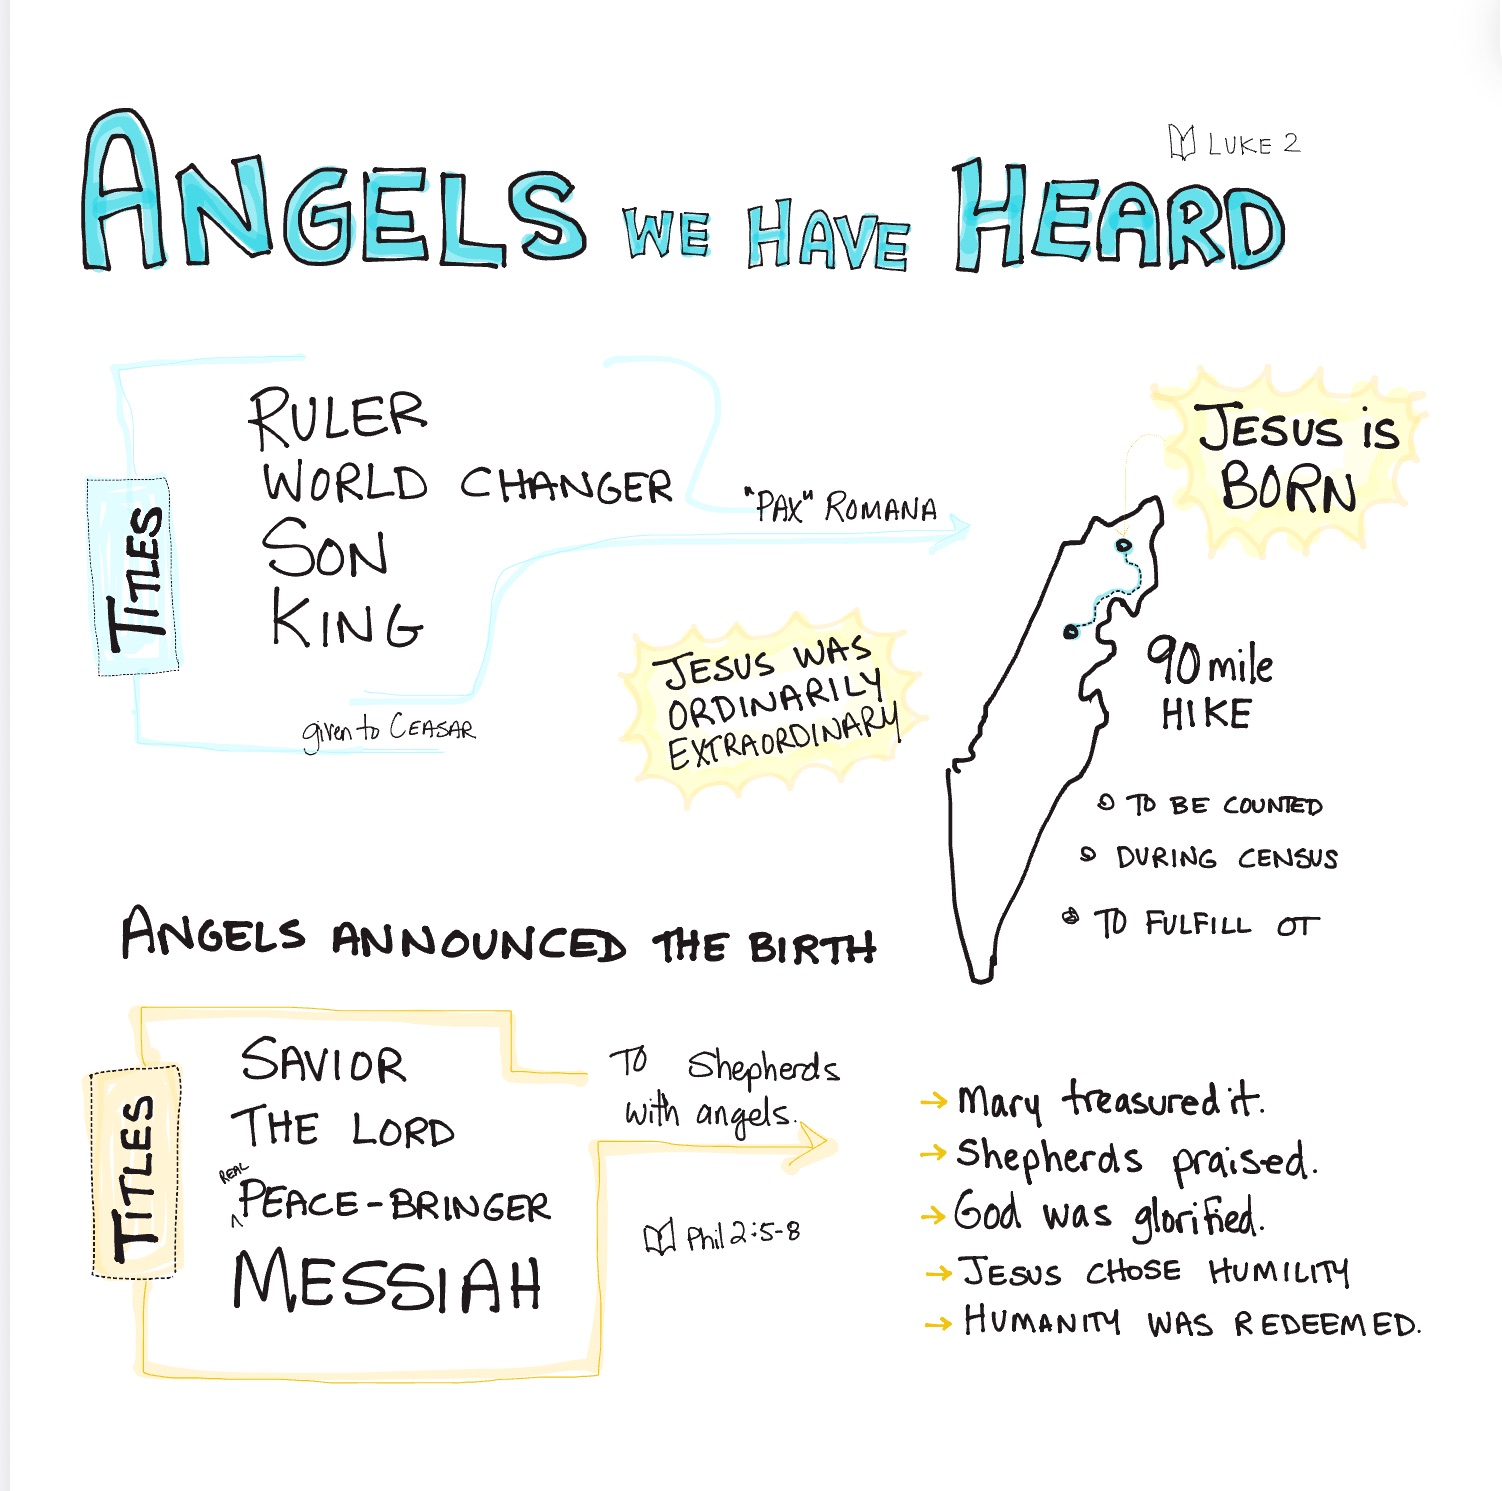 LUKE 2
ANGELS WE HAVE HEARD
TITLES
RULER
WORLD CHANGER
SON
KING
given to CEASAR
"PAX" ROMANA
JESUS IS
BORN
JESUS WAS
ORDINARILY
EXTRAORDINARY
90 mile
HIKE
TO BE COUNTED
DURING CENSUS
TO FULFILL OT
ANGELS ANNOUNCED THE BIRTH
TITLES
SAVIOR
THE LORD
REAL
^PEACE-BRINGER
MESSIAH
TO Shepherds
with angels.
Phil 2:5-8
→ Mary treasured it.
→ Shepherds praised.
→ God was glorified.
→ JESUS CHOSE HUMILITY
→ HUMANITY WAS REDEEMED.